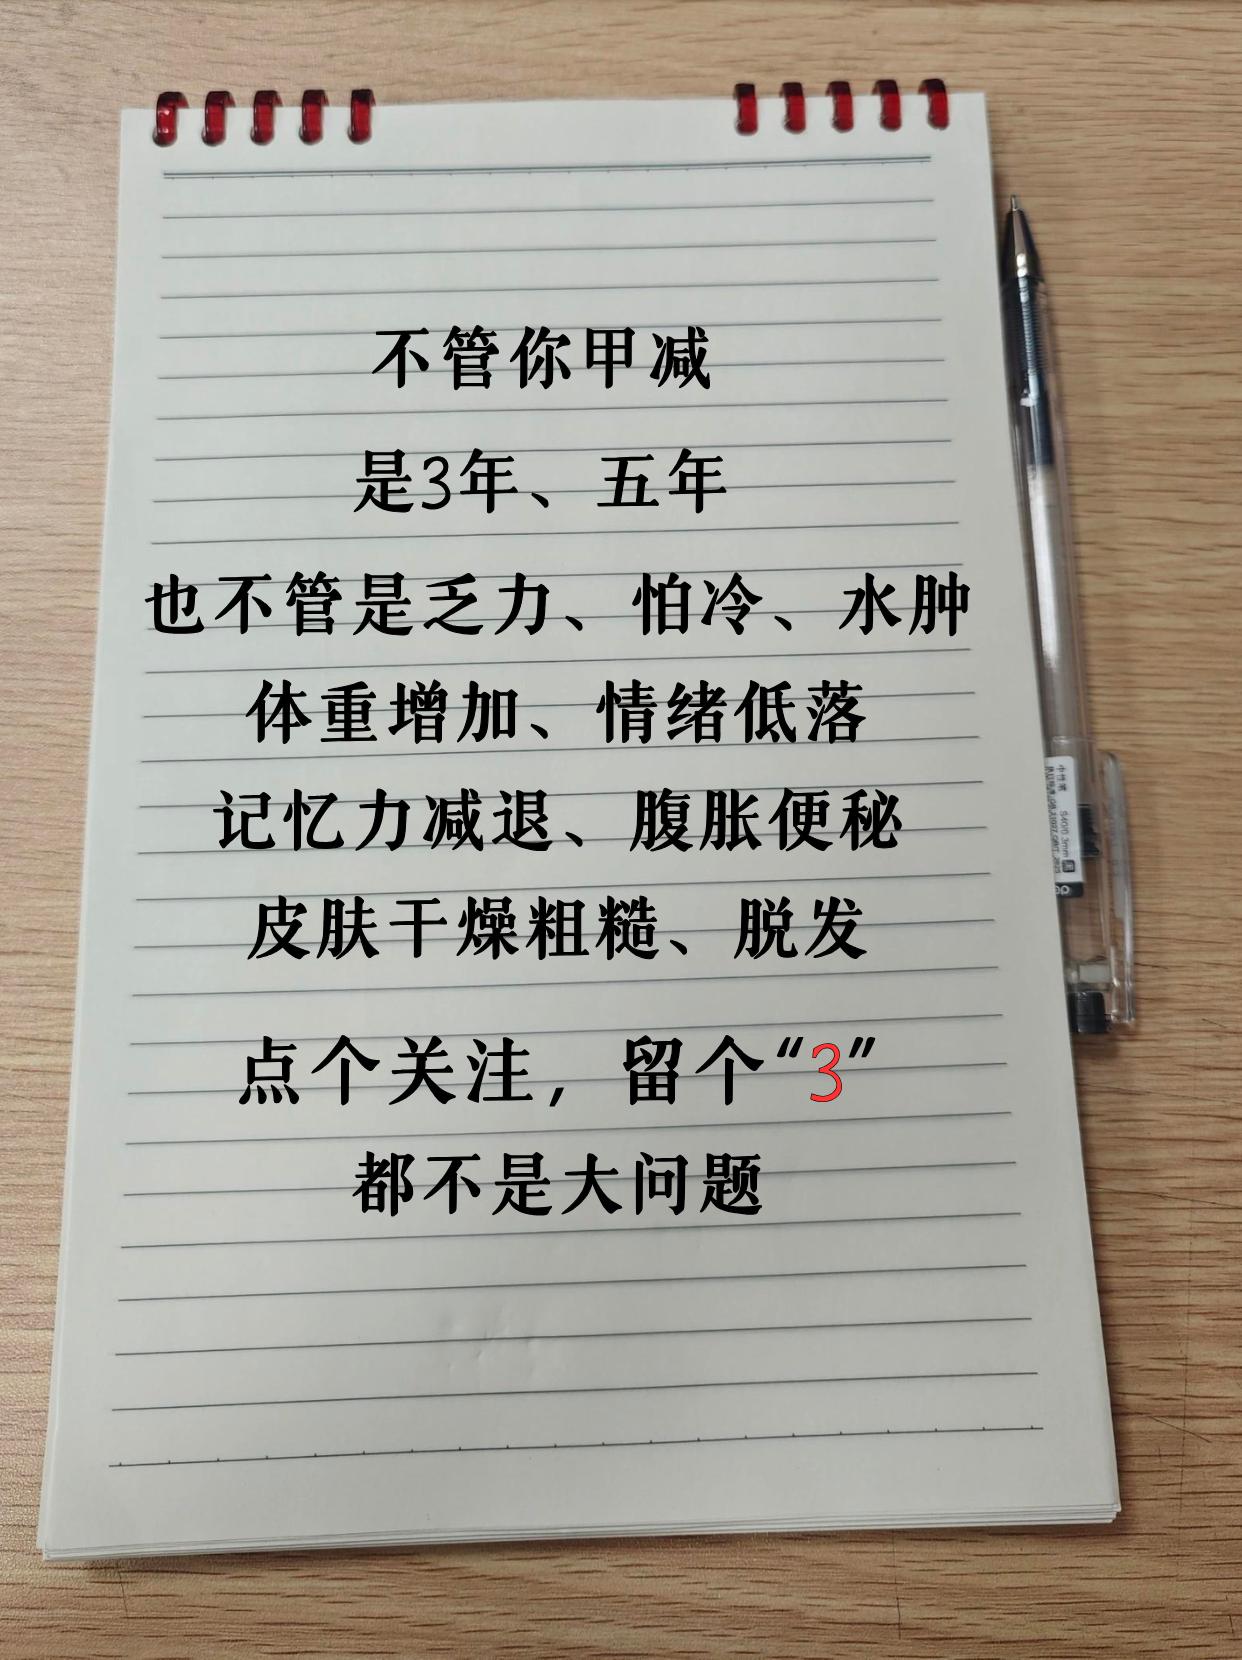 不管你甲减
是3年、五年
也不管是乏力、怕冷、水肿
体重增加、情绪低落
记忆力减退、腹胀便秘
皮肤干燥粗糙、脱发
点个关注，留个“3”
都不是大问题
中性笔